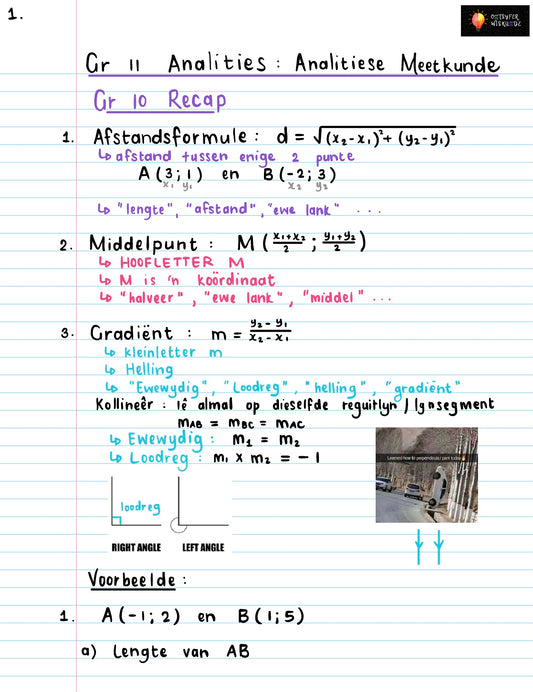 1.
OOSTRUFER
WISKUNDE
Gr 11 Analities : Analitiese Meetkunde
Gr 10 Recap
1. Afstandsformule : d = √(x₂-x₁)²+(y₂-y₁)²
↳ afstand tussen enige 2 punte
A (3 ; 1) en B (-2 ; 3)
x₁ y₁ x₂ y₂
↳ "lengte", "afstand", "ewe lank" ...
2. Middelpunt : M ( (x₁+x₂)/2 ; (y₁+y₂)/2 )
↳ HOOFLETTER M
↳ M is 'n koördinaat
↳ "halveer", "ewe lank", "middel" ...
3. Gradiënt : m = (y₂-y₁)/(x₂-x₁)
↳ kleinletter m
↳ Helling
↳ "Ewewydig", "Loodreg", "helling", "gradiënt"
Kollineêr : lê almal op dieselfde reguitlyn / lynsegment
m_AB = m_BC = m_AC
↳ Ewewydig : m₁ = m₂
↳ Loodreg : m₁ x m₂ = -1
Learned how to perpendicular park today
loodreg
RIGHT ANGLE LEFT ANGLE
Voorbeelde :
1. A (-1 ; 2) en B (1 ; 5)
a) Lengte van AB